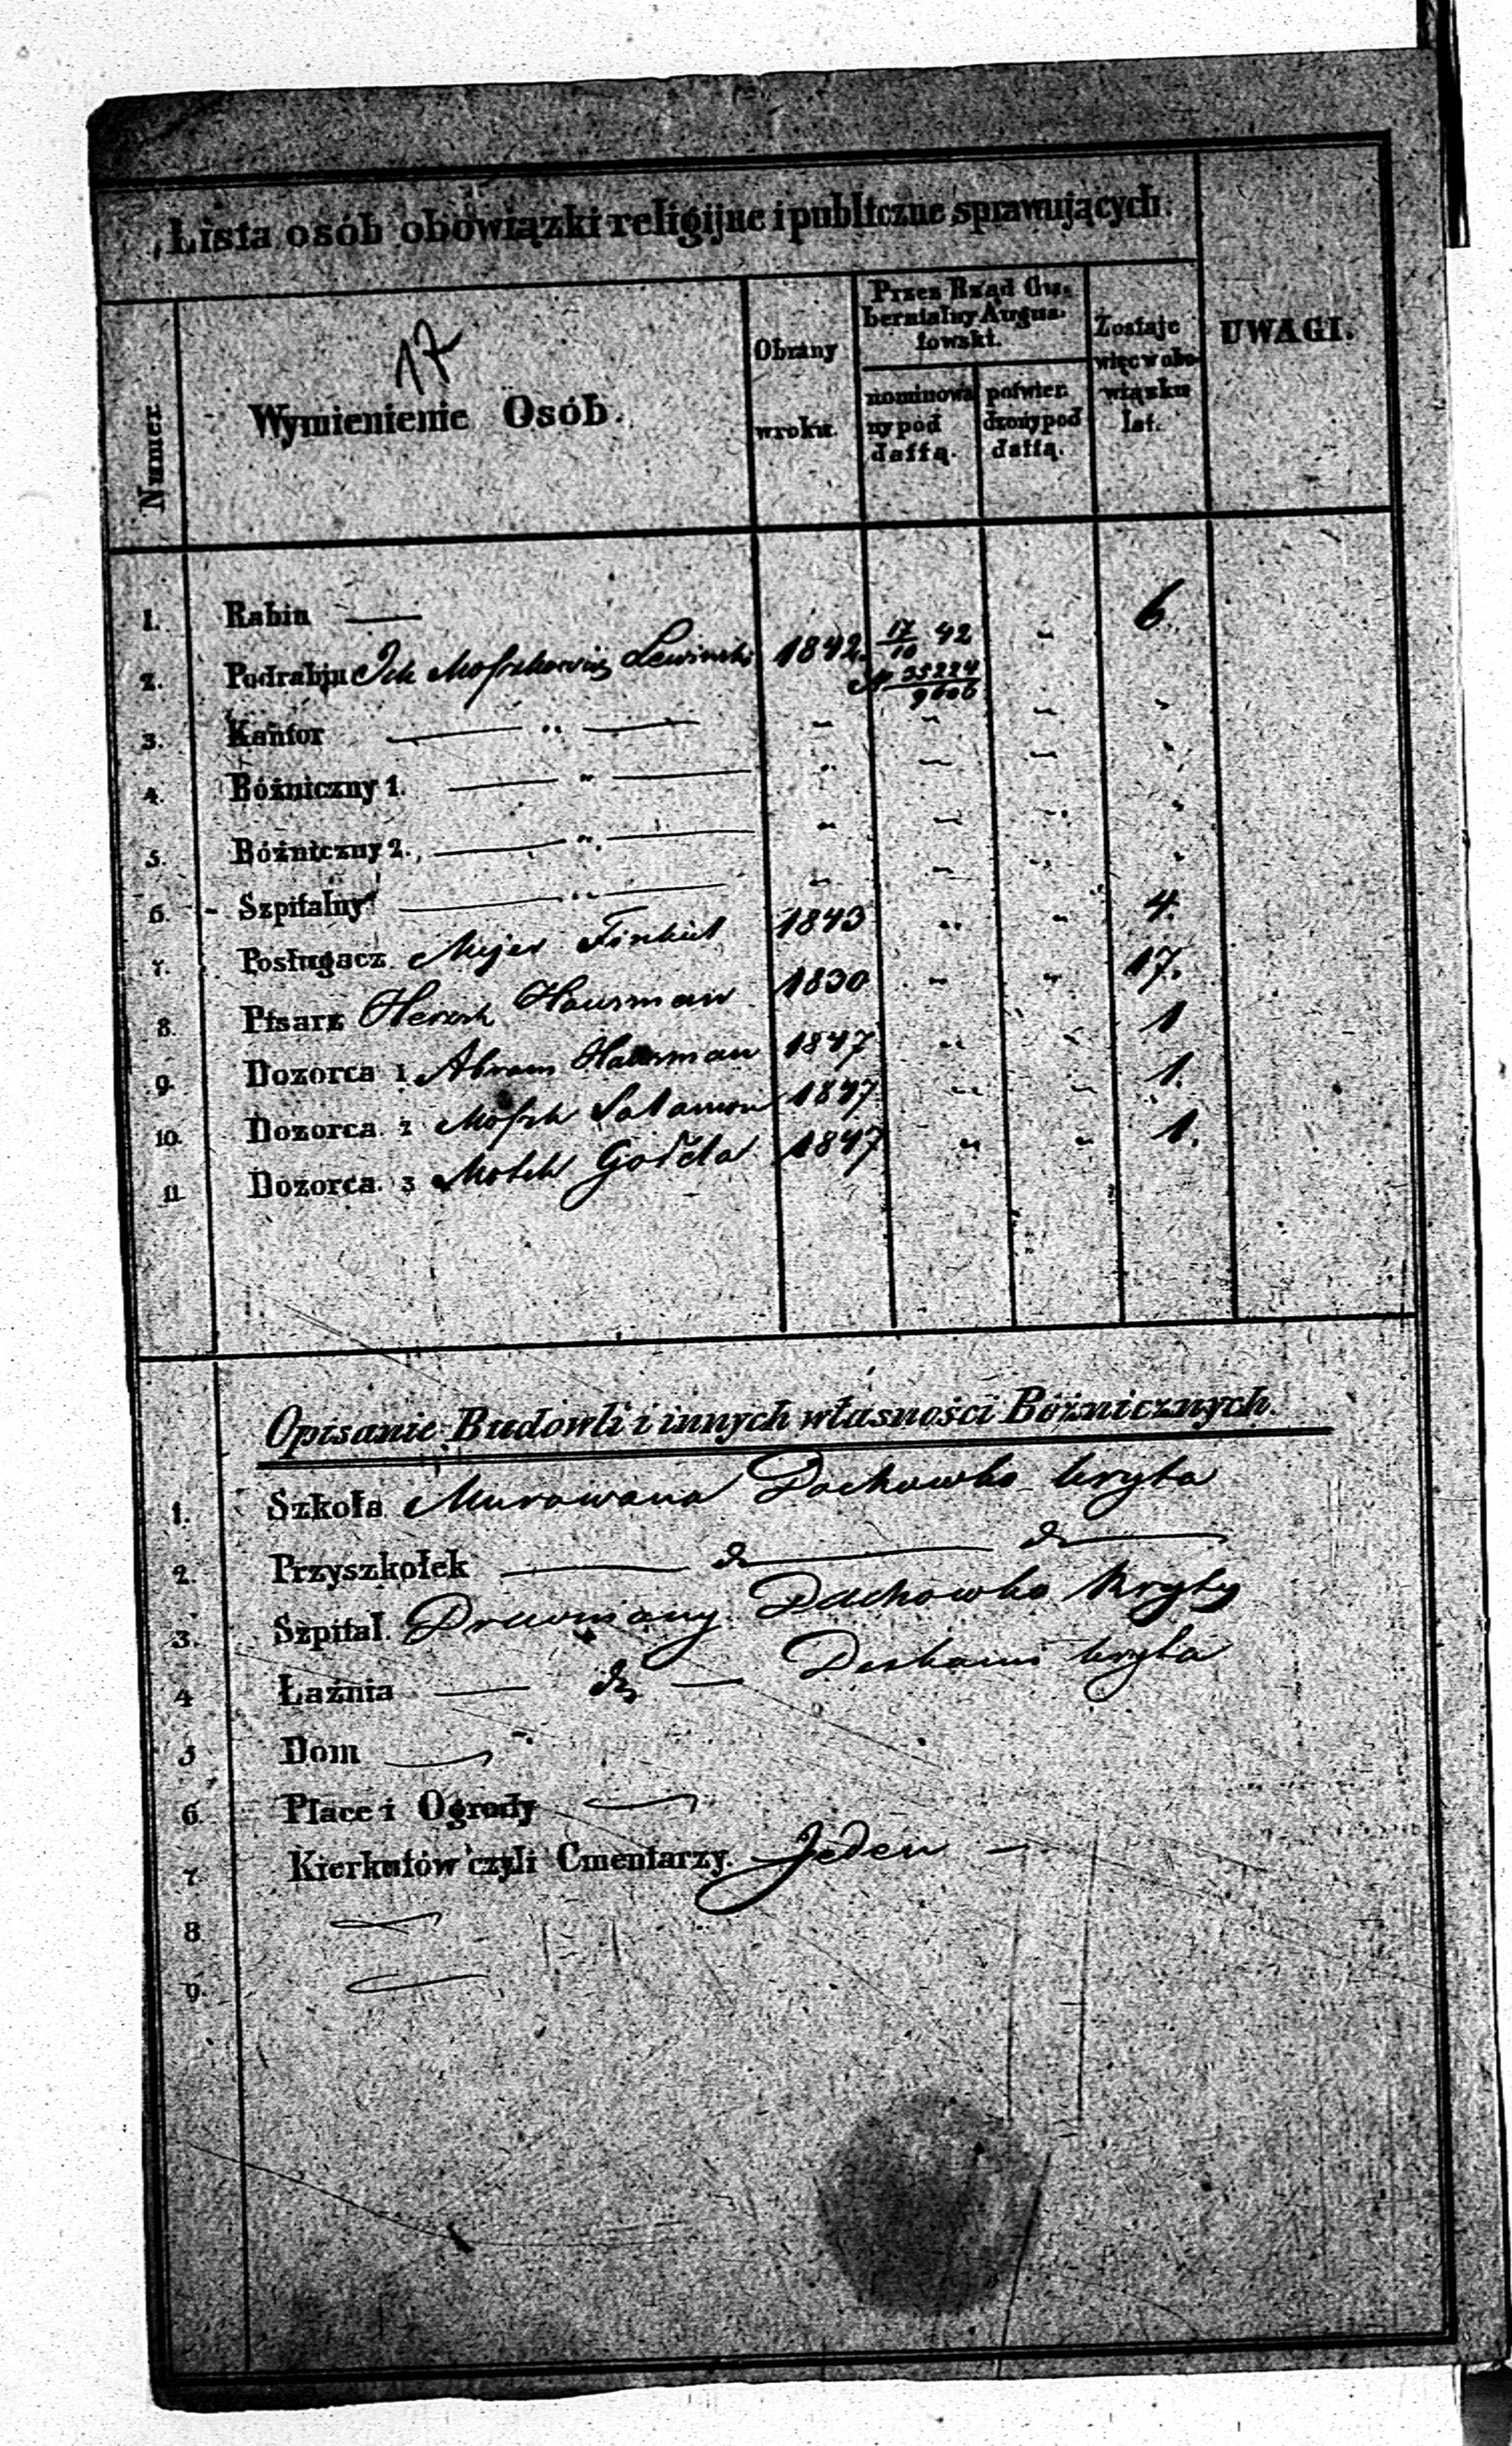 Lista osób obowiązki religijne i publiczne sprawujących.
Numer
17
Wymienienie Osób.
Obrany
w roku.
Przez Rząd Gu-
bernialny Augus-
towski.
nominowa
ny pod
dattą.
potwier
dzony pod
dattą.
Zostaje
więc w obo-
wiązku
lat.
UWAGI.
1. Rabin —
2. Podrabin Ick Moszkowicz Lewinski 1842. 17/10 42 - 6.
N 35224/9606
3. Kantor — " — - - - -
4. Bóżniczny 1. — " — " - - "
5. Bóżniczny 2. — " — - - - "
6. Szpitalny — " — - - - "
7. Posługacz Mejer Finkiel 1843 " - 4.
8. Pisarz Hersch Hausman 1830 - " 17.
9. Dozorca 1 Abram Hausman 1847 " " 1
10. Dozorca 2 Moszk Salamon 1847 " - 1.
11 Dozorca 3 Motek 1847 " - 1.
Opisanie Budowli i innych własności Bóżnicznych.
1. Szkoła Murowana Dachowko kryta
2. Przyszkołek — d — d —
3. Szpital. Drewniany Dachowko kryty
4 Łaźnia — d — Deskami kryta
5 Dom —
6. Place i Ogrody —
7. Kierkutów czyli Cmentarzy. Jeden —
8
9.